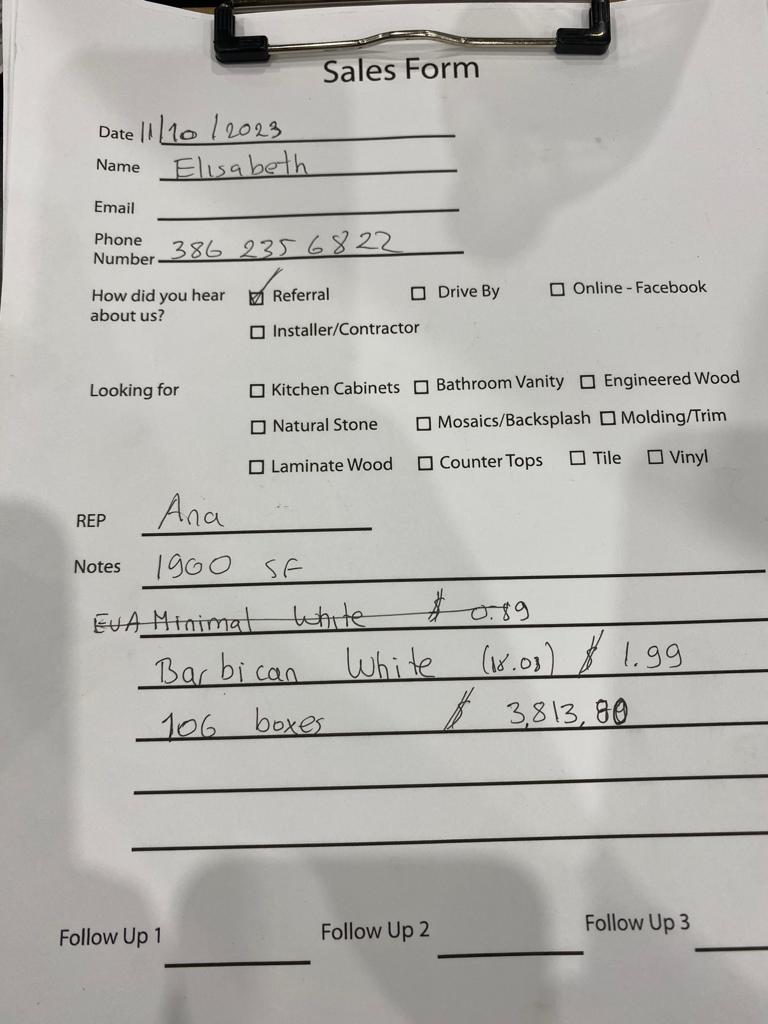 Sales Form
Date 11/10/2023
Name Elisabeth
Email
Phone Number 386 235 6822
How did you hear about us? ☑ Referral ☐ Drive By ☐ Online - Facebook
☐ Installer/Contractor
Looking for ☐ Kitchen Cabinets ☐ Bathroom Vanity ☐ Engineered Wood
☐ Natural Stone ☐ Mosaics/Backsplash ☐ Molding/Trim
☐ Laminate Wood ☐ Counter Tops ☐ Tile ☐ Vinyl
REP Ana
Notes 1900 SF
EVA Minimal White $ 0.89
Barbican White (18.08) $ 1.99
106 boxes $ 3,813,80
Follow Up 1 Follow Up 2 Follow Up 3